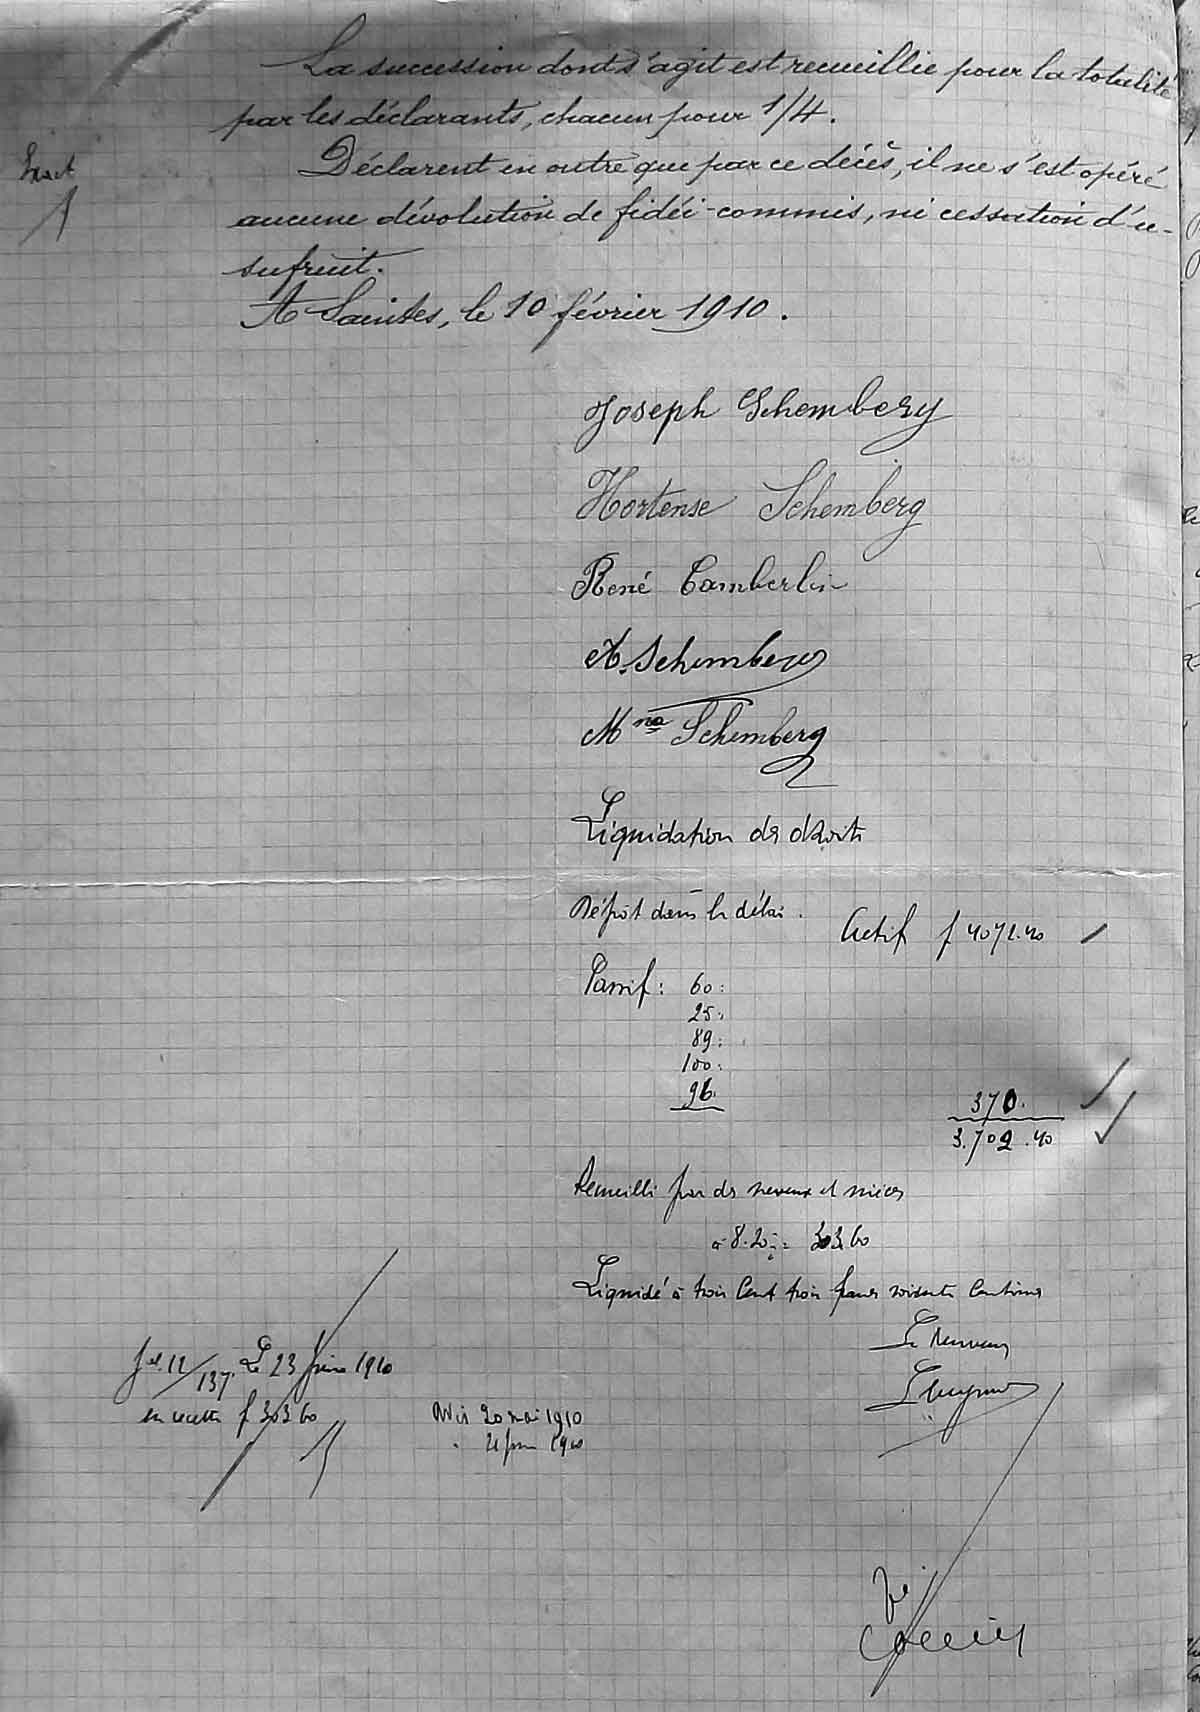 La succession dont s'agit est recueillie pour la totalité
par les déclarants, chacun pour 1/4.
Exact
Déclarent en outre que par ce décès, il ne s'est opéré
aucune dévolution de fidéi-commis, ni cessation d'u-
sufruit.
A Saintes, le 10 février 1910.
Joseph Schemberg
Hortense Schemberg
René Camberlin
A. Schemberg
Mna Schemberg
Liquidation des droits
Dépôt dans le délai.
Actif f 4072.40
Passif : 60 :
25 :
89 :
100 :
96.
370.
3.702.40
Recueilli par des neveux et nièces
à 8.20 % : 303.60
Liquidé à trois cent trois francs soixante centimes
Le Receveur
Vol. 12/137. Le 23 1910
en recette f 303 60
Avis 20 mai 1910
21 juin 1910